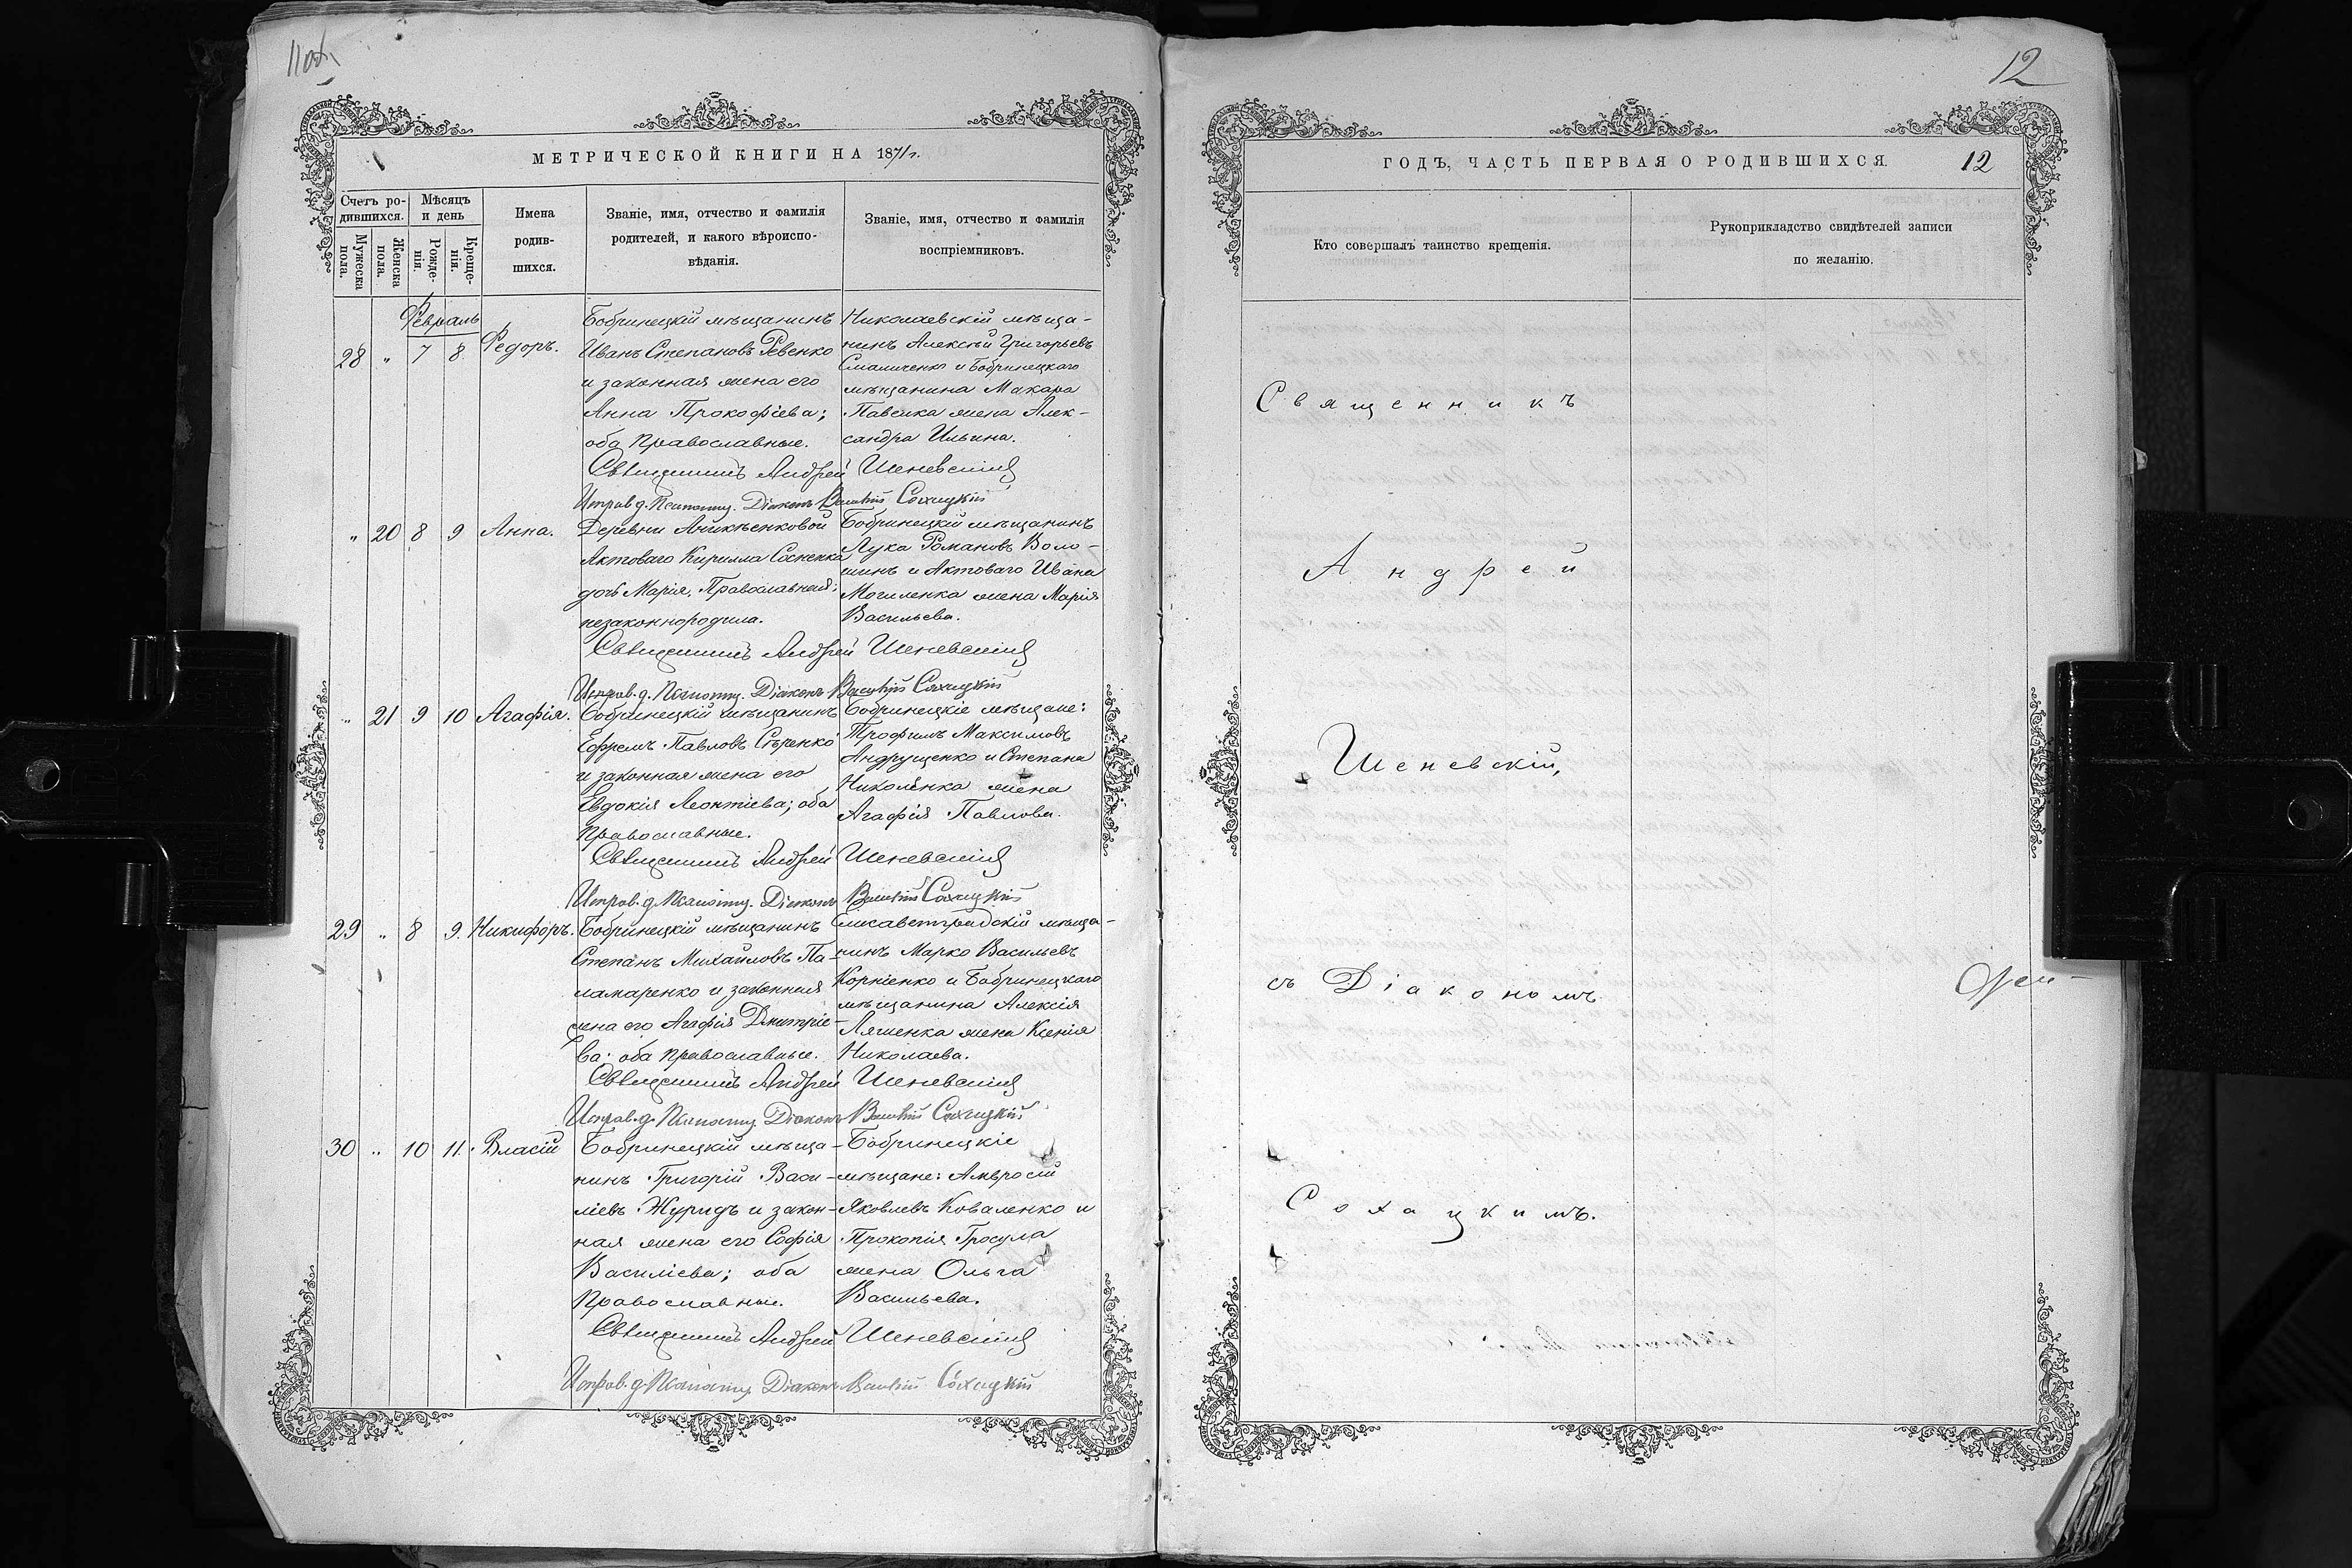 11об.
МЕТРИЧЕСКОЙ КНИГИ НА 1871 г.
Счетъ ро-
дившихся.
Мужеска
пола.
Женска
пола.
Мѣсяцъ
и день
Рожде-
нія.
Креще-
нія.
Имена
родив-
шихся.
Званіе, имя, отчество и фамилія
родителей, и какого вѣроиспо-
вѣданія.
Званіе, имя, отчество и фамилія
воспріемниковъ.
Февраль
28 " 7 8. Федоръ.
Бобринецкій мѣщанинъ
Иванъ Степановъ Ревенко
и законная жена его
Анна Прокофіева;
оба православные.
Николаевскій мѣща-
нинъ Алексѣй Григорьевъ
и Бобринецкаго
мѣщанина Макара
Павелка жена Алек-
сандра Ильина.
Священникъ Андрей Шеневскій
Исправ. д. Псаломщ. Діаконъ Сохацкій
" 20 8 9 Анна.
Деревни Аникѣенковой
Актоваго Кирилла
дочь Марія, Православная;
незаконнородила.
Бобринецкій мѣщанинъ
Лука Романовъ Воло-
шинъ и Актоваго Ивана
Могиленка жена Марія
Васильева.
Священникъ Андрей Шеневскій
Исправ. д. Псаломщ. Діаконъ Сохацкій
" 21 9 10 Агафія.
Бобринецкій мѣщанинъ
Ефремъ Павловъ Сѣренко
и законная жена его
Евдокія Леонтіева; оба
православные.
Бобринецкіе мѣщане:
Трофимъ Максимовъ
Андрущенко и Степана
Николенка жена
Агафія Павлова.
Священникъ Андрей Шеневскій
Исправ. д. Псаломщ. Діаконъ Сохацкій
29 " 8 9. Никифоръ.
Бобринецкій мѣщанинъ
Степанъ Михайловъ Па-
ламаренко и законная
жена его Агафія Дмитріе-
ва; оба православные.
Елисаветградскій мѣща-
нинъ Марко Васильевъ
Корніенко и Бобринецкаго
мѣщанина Алексія
Ляшенка жена Ксенія
Николаева.
Священникъ Андрей Шеневскій
Исправ. д. Псаломщ. Діаконъ Сохацкій
30 " 10 11. Власій
Бобринецкій мѣща-
нинъ Григорій Васи-
ліевъ Журидъ и закон-
ная жена его Софія
Василіева; оба
православные.
Бобринецкіе
мѣщане: Амвросій
Яковлевъ Коваленко и
Прокопія Гросула
жена Ольга
Васильева.
Священникъ Андрей Шеневскій
Исправ. д. Псаломщ. Діаконъ Сохацкій
12
ГОДЪ, ЧАСТЬ ПЕРВАЯ О РОДИВШИХСЯ. 12
Кто совершалъ таинство крещенія.
Рукоприкладство свидѣтелей записи
по желанію.
Священникъ
Андрей
Шеневскій,
съ Діакономъ
Сохацкимъ.